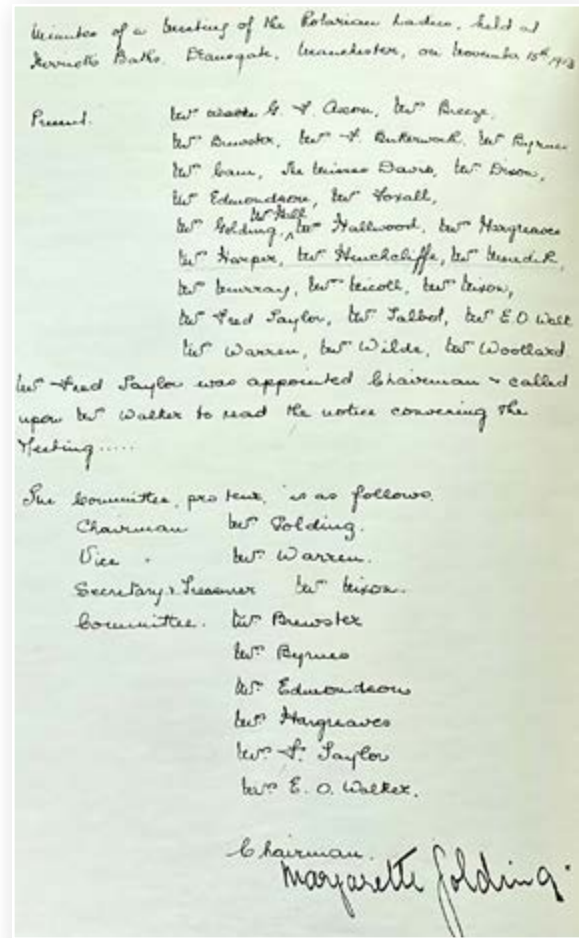 Minutes of a Meeting of the Rotarian Ladies, held at
Herriotts Baths, Deansgate, Manchester, on November 15th 1923
Present. Mrs G. F. Mrs Breeze,
Mrs Brewster, Mrs F. Butterworth, Mrs Byrnes
Mrs Cain, The Misses Davis, Mrs Dixon,
Mrs Edmondson, Mrs Foxall,
Mrs Hill
Mrs Golding, Mrs Hallwood, Mrs Hargreaves
Mrs Harper, Mrs Hinchcliffe, Mrs
Mrs Murray, Mrs Nicoll, Mrs Nixon,
Mrs Fred Taylor, Mrs Talbot, Mrs E.O. Walk
Mrs Warren, Mrs Wilde, Mrs Woollard
Mrs Fred Taylor was appointed Chairman & called
upon Mrs Walker to read the notice convening the
Meeting.....
The Committee, pro tem, is as follows.
Chairman Mrs Golding.
Vice " Mrs Warren.
Secretary & Treasurer Mrs Nixon.
Committee. Mrs Brewster
Mrs Byrnes
Mrs Edmondson
Mrs Hargreaves
Mrs F. Taylor
Mrs E. O. Walker.
Chairman.
Margarette Golding.